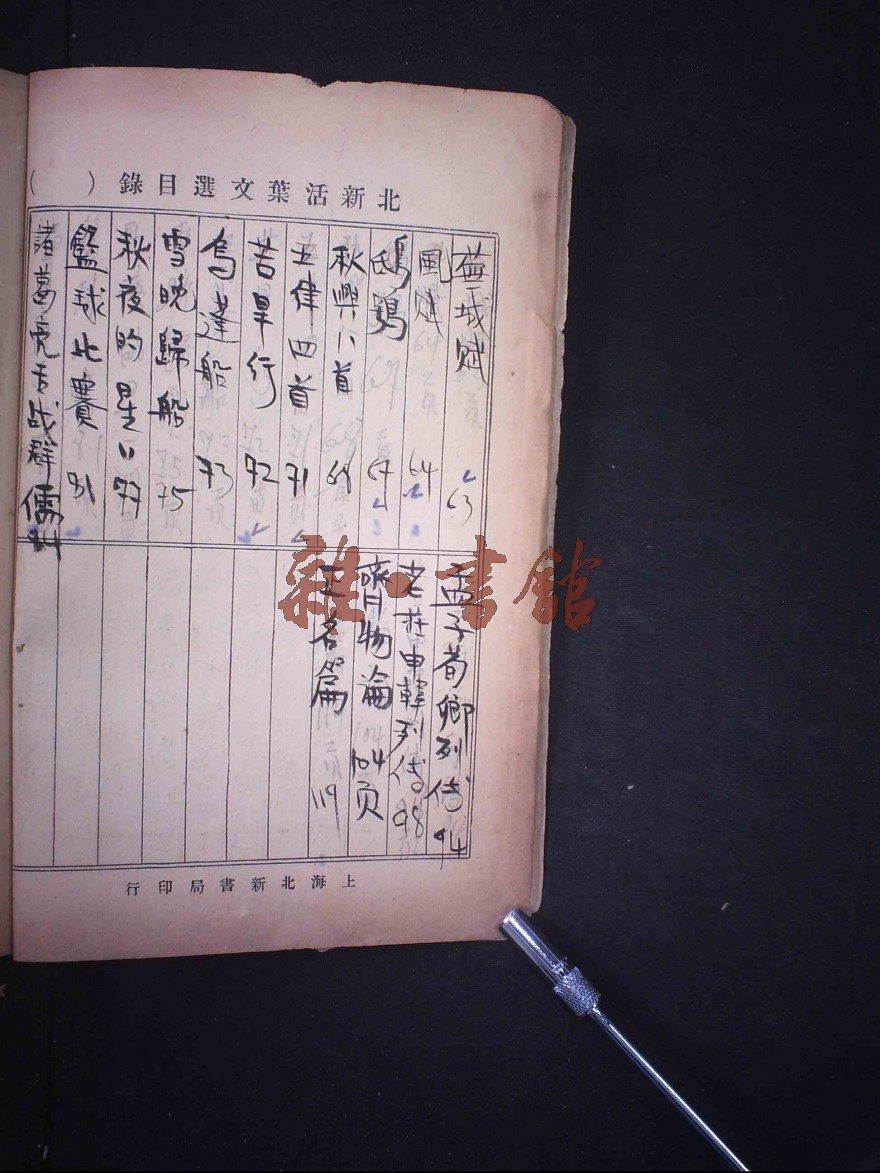 北新活葉文選目錄（　）
蕪城賦 63
風賦 64
鴟鴞 67
秋興八首 69
五律四首 71
苦旱行 72
烏蓬船 73
雪晚歸船 75
秋夜的星㆑ 77
籃球比賽 81
諸葛亮舌战群儒 84
孟子荀卿列传 94
老莊申韓列传 98
齊物論 104页
正名篇 119
上海北新書局印行
雜·書館